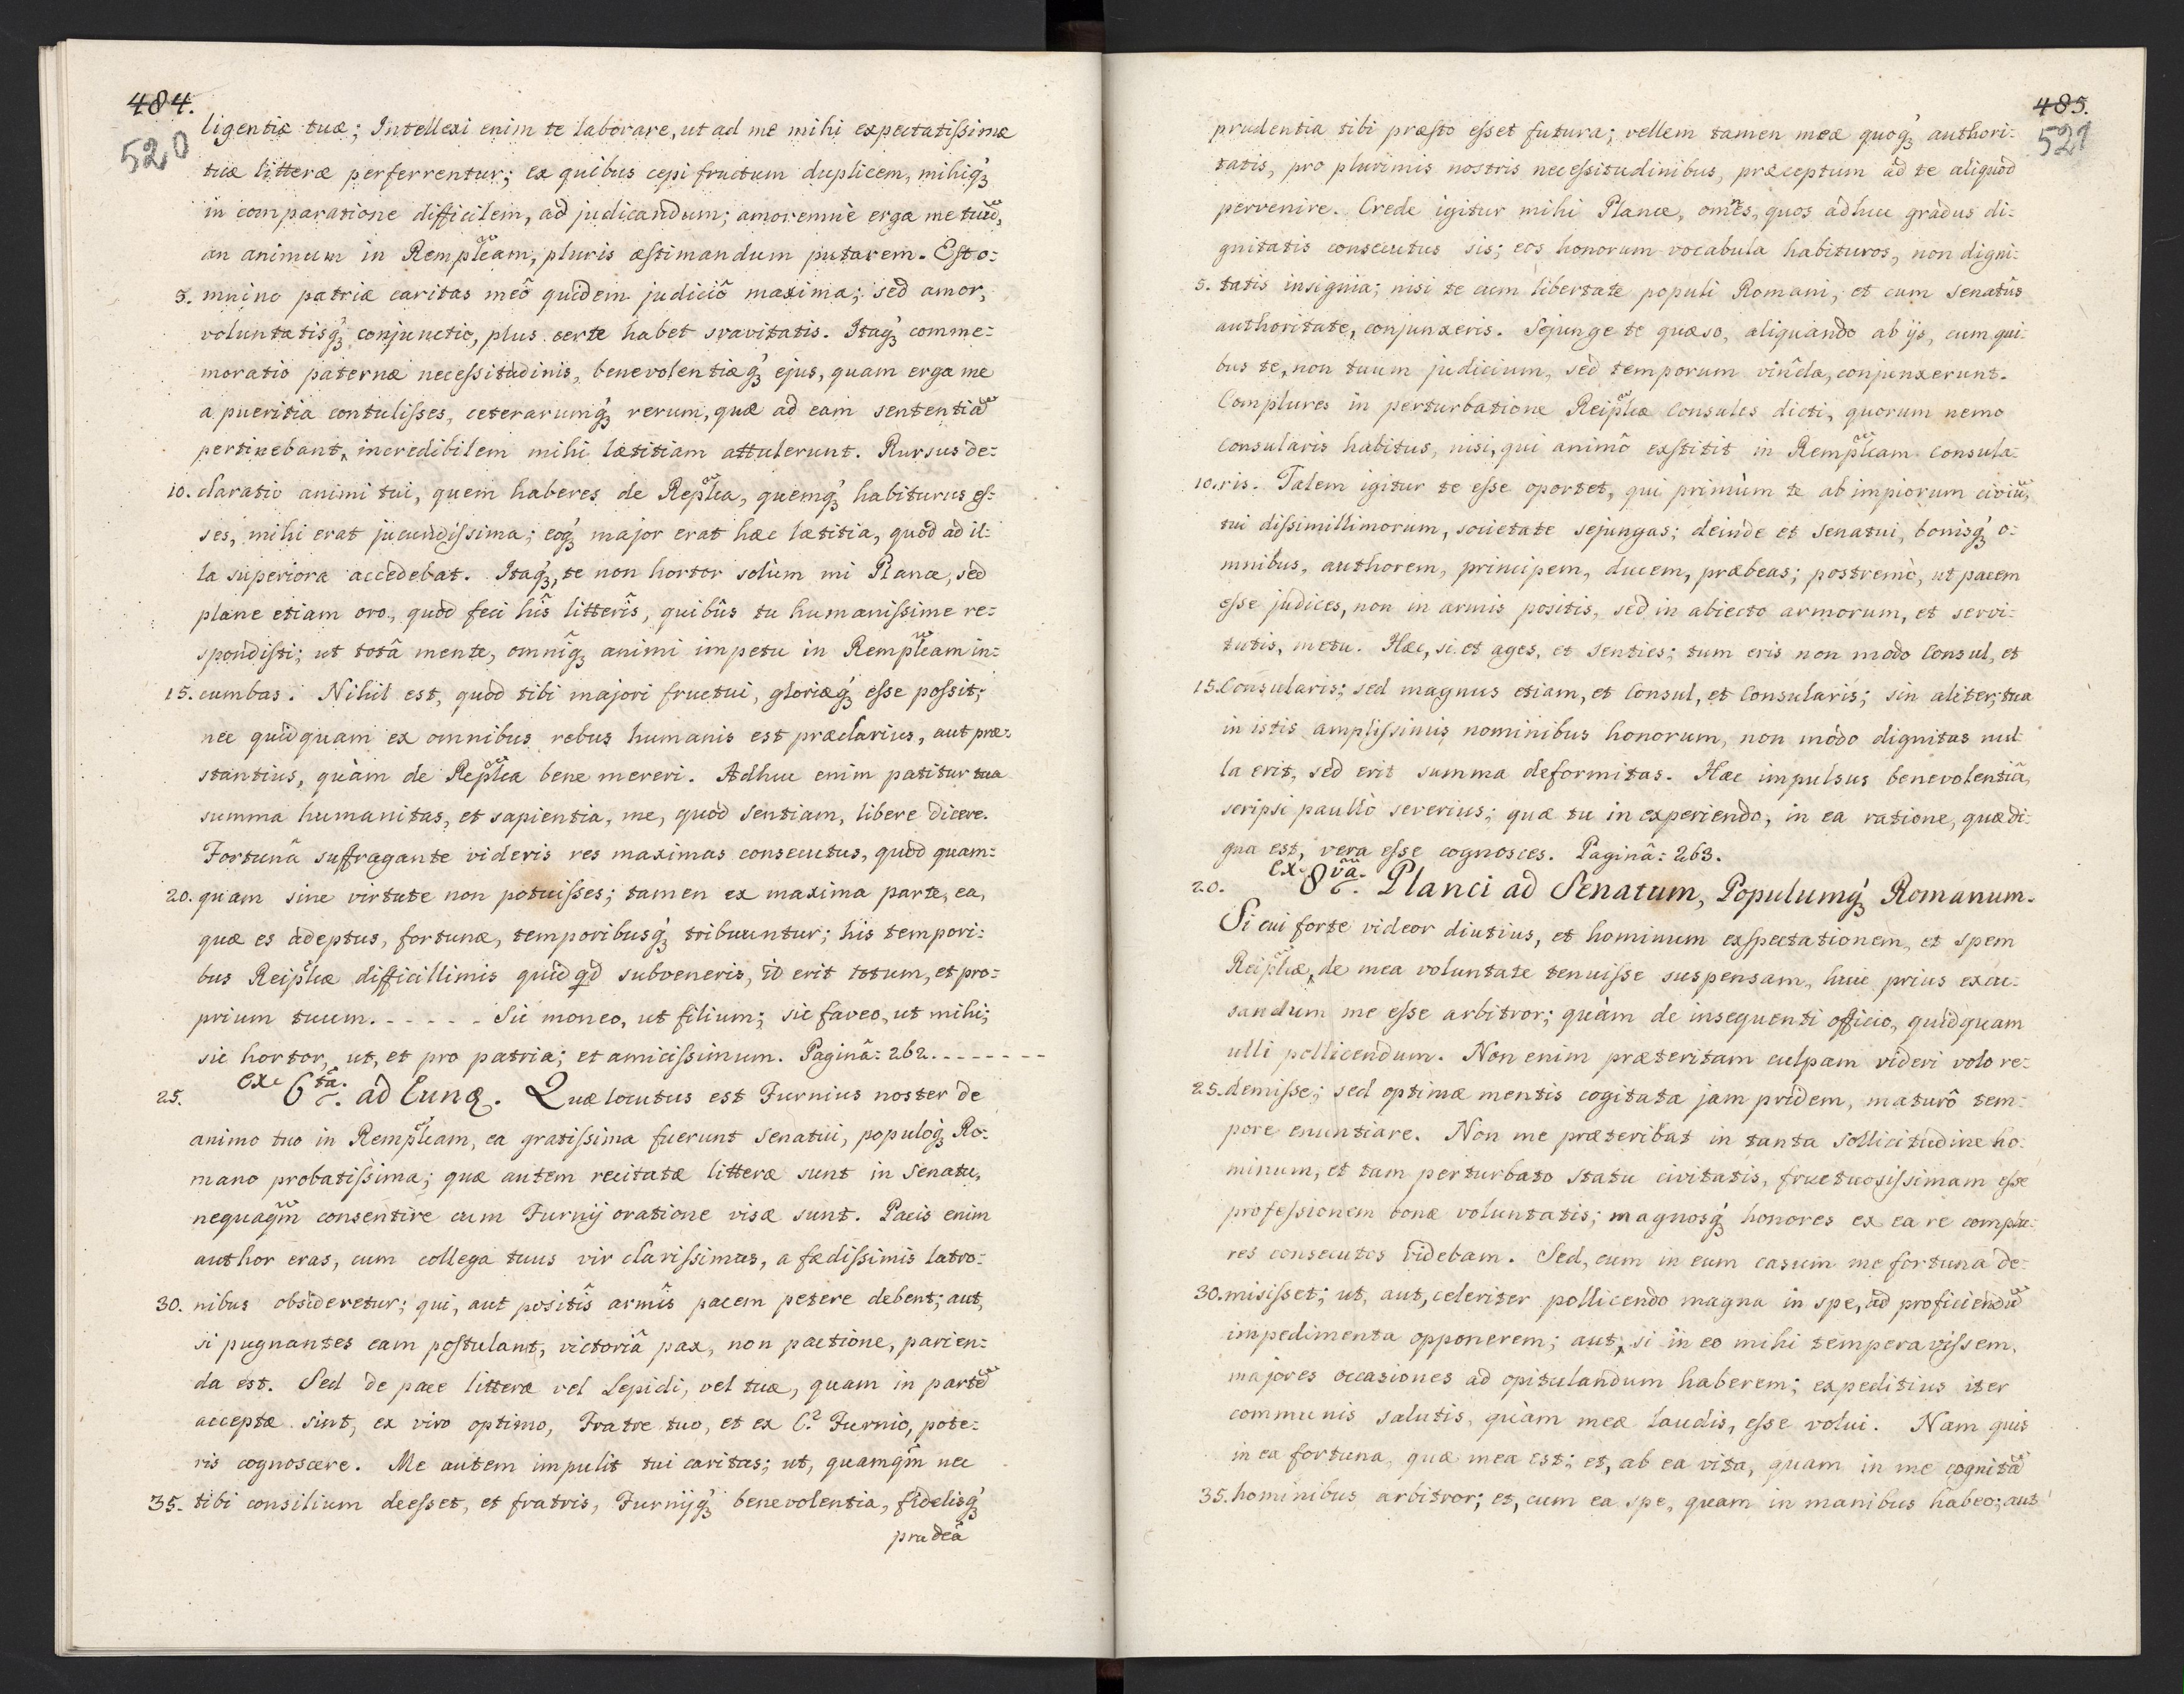 484.
520
ligentiæ tuæ; Intellexi enim te laborare, ut ad me mihi expectatissimæ
tuæ litteræ perferrentur; ex quibus cepi fructum duplicem, mihiq́ꝫ
in comparatione difficilem, ad judicandum; amoremnè erga me tuũ,
an animum in Remp̃lcam, pluris æstimandum putarem. Est o:
5. mnino patriæ caritas meô quidem judiciô maxima; sed amor,
voluntatisq́ꝫ conjunctio, plus certe habet svavitatis. Itaq́ꝫ comme:
moratio paternæ necessitudinis, benevolentiæq́ꝫ ejus, quam erga me
a pueritia contulisses, ceterarumq́ꝫ rerum, quæ ad eam sententiã
pertinebant, incredibilem mihi lætitiam attulerunt. Rursus de:
10. claratio animi tui, quem haberes de Rep̃lca, quemq́ꝫ habiturus es:
ses, mihi erat jucundissima; eoq́ꝫ major erat hæc lætitia, quòd ad il:
la superiora accedebat. Itaq́ꝫ, te non hortor solùm mi Plance, sed
plane etiam oro, quòd feci hîs litterîs, quibûs tu humanissime re:
spondisti; ut totâ mente, omniq́ꝫ animi impetu in Remp̃lcam in:
15. cumbas. Nihil est, quòd tibi majori fructui, gloriæq́ꝫ esse possit;
nec quidquam ex omnibus rebus humanis est præclarius, aut præ:
stantius, quàm de Rep̃lca bene mereri. Adhuc enim patitur tua
summa humanitas, et sapientia, me, quòd sentiam, libere dicere.
Fortunâ suffragante videris res maximas consecutus, quòd quam:
20. quam sine virtute non potuisses; tamen ex maxima parte, ea,
quæ es adeptus, fortunæ, temporibusq́ꝫ tribuuntur; his tempori:
bus Reip̃lcæ difficillimis quidqd subveneris, id erit totum, et pro:
prium tuum. - - - - - Sic moneo, ut filium; sic faveo, ut mihi;
sic hortor, ut, et pro patria; et amicissimum. Paginâ: 262. - - - - - - - -
25. Ex 6tâ. ad Eund. Quæ locutus est Furnius noster de
animo tuo in Remp̃lcam, ea gratissima fuerunt Senatui, populoq́ꝫ Ro:
mano probatissima; quæ autem recitatæ litteræ sunt in Senatu,
nequaqm̃ consentire cum Furnij oratione visæ sunt. Pacis enim
author eras, cum collega tuus vir clarissimus, a fædissimis latro:
30. nibus obsideretur; qui, aut positîs armîs pacem petere debent; aut,
si pugnantes eam postulant, victoriâ pax, non pactione, parien:
da est. Sed de pace litteræ vel Lepidi, vel tuæ, quam in partẽ
acceptæ sint, ex viro optimo, Fratre tuo, et ex C. Furnio, pote:
ris cognoscere. Me autem impulit tui caritas; ut, quamqm̃ nec
35. tibi consilium deesset, et fratris, Furnijq́ꝫ benevolentia, fidelisq́ꝫ
prudea
485.
521
prudentia tibi præsto esset futura; vellem tamen meæ quoq́ꝫ authori:
tatis, pro plurimis nostris necessitudinibus, præceptum ad te aliquòd
pervenire. Crede igitur mihi Plance, om̃es, quos adhuc gradus di:
gnitatis consecutus sis; eos honorum vocabula habituros, non digni:
5. tatis insignia; nisi te cum libertate populi Romani, et cum Senatûs
authoritate, conjunxeris. Sejunge te quæso, aliquando ab ijs, cum qui:
bus te, non tuum judicium, sed temporum vincla, conjunxerunt.
Complures in perturbatione Reip̃lcæ Consules dicti, quorum nemo
Consularis habitus, nisi, qui animô exstitit in Remp̃lcam Consula:
10. ris. Talem igitur te esse oportet, qui primùm te ab impiorum civiũ,
tui dissimillimorum, societate sejungas; deinde et Senatui, bonisq́ꝫ o:
mnibus, authorem, principem, ducem, præbeas; postremò, ut pacem
esse judices, non in armis positis, sed in abiecto armorum, et servi:
tutis, metu. Hæc, si et ages, et senties; tum eris non modo Consul, et
15. Consularis; sed magnus etiam, et Consul, et Consularis; sin aliter; tua
in istis amplissimis nominibus honorum, non modo dignitas nul
la erit, sed erit summa deformitas. Hæc impulsus benevolentiâ,
scripsi paullò severius; quæ tu in experiendo, in ea ratione, quæ di:
gna est, vera esse cognosces. Paginâ: 263.
20. Ex 8vâ. Planci ad Senatum, Populumq́ꝫ Romanum.
Si cui forte videor diutius, et hominum exspectationem, et spem
Reip̃lcæ, de mea voluntate tenuisse suspensam, huic prius excu:
sandum me esse arbitror; quàm de insequenti officio, quidquam
ulli pollicendum. Non enim præteritam culpam videri volo re:
25. demisse; sed optimæ mentis cogitata jam pridem, maturô tem:
pore enuntiare. Non me præteribat in tanta sollicitudine ho:
minum, et tam perturbato statu civitatis, fructuosissimam esse
professionem bonæ voluntatis; magnosq́ꝫ honores ex ea re complu:
res consecutos videbam. Sed, cum in eum casum me fortuna de:
30. misisset; ut, aut, celeriter pollicendo magna in spe, ad proficiendũ
impedimenta opponerem; aut, si in eo mihi temperavissem,
majores occasiones ad opitulandum haberem; expeditius iter
communis salutis, quàm meæ laudis, esse volui. Nam quis
in ea fortuna, quæ mea est; et, ab ea vita, quam in me cognitã
35. hominibus arbitror; et, cum ea spe, quam in manibus habeo; aut